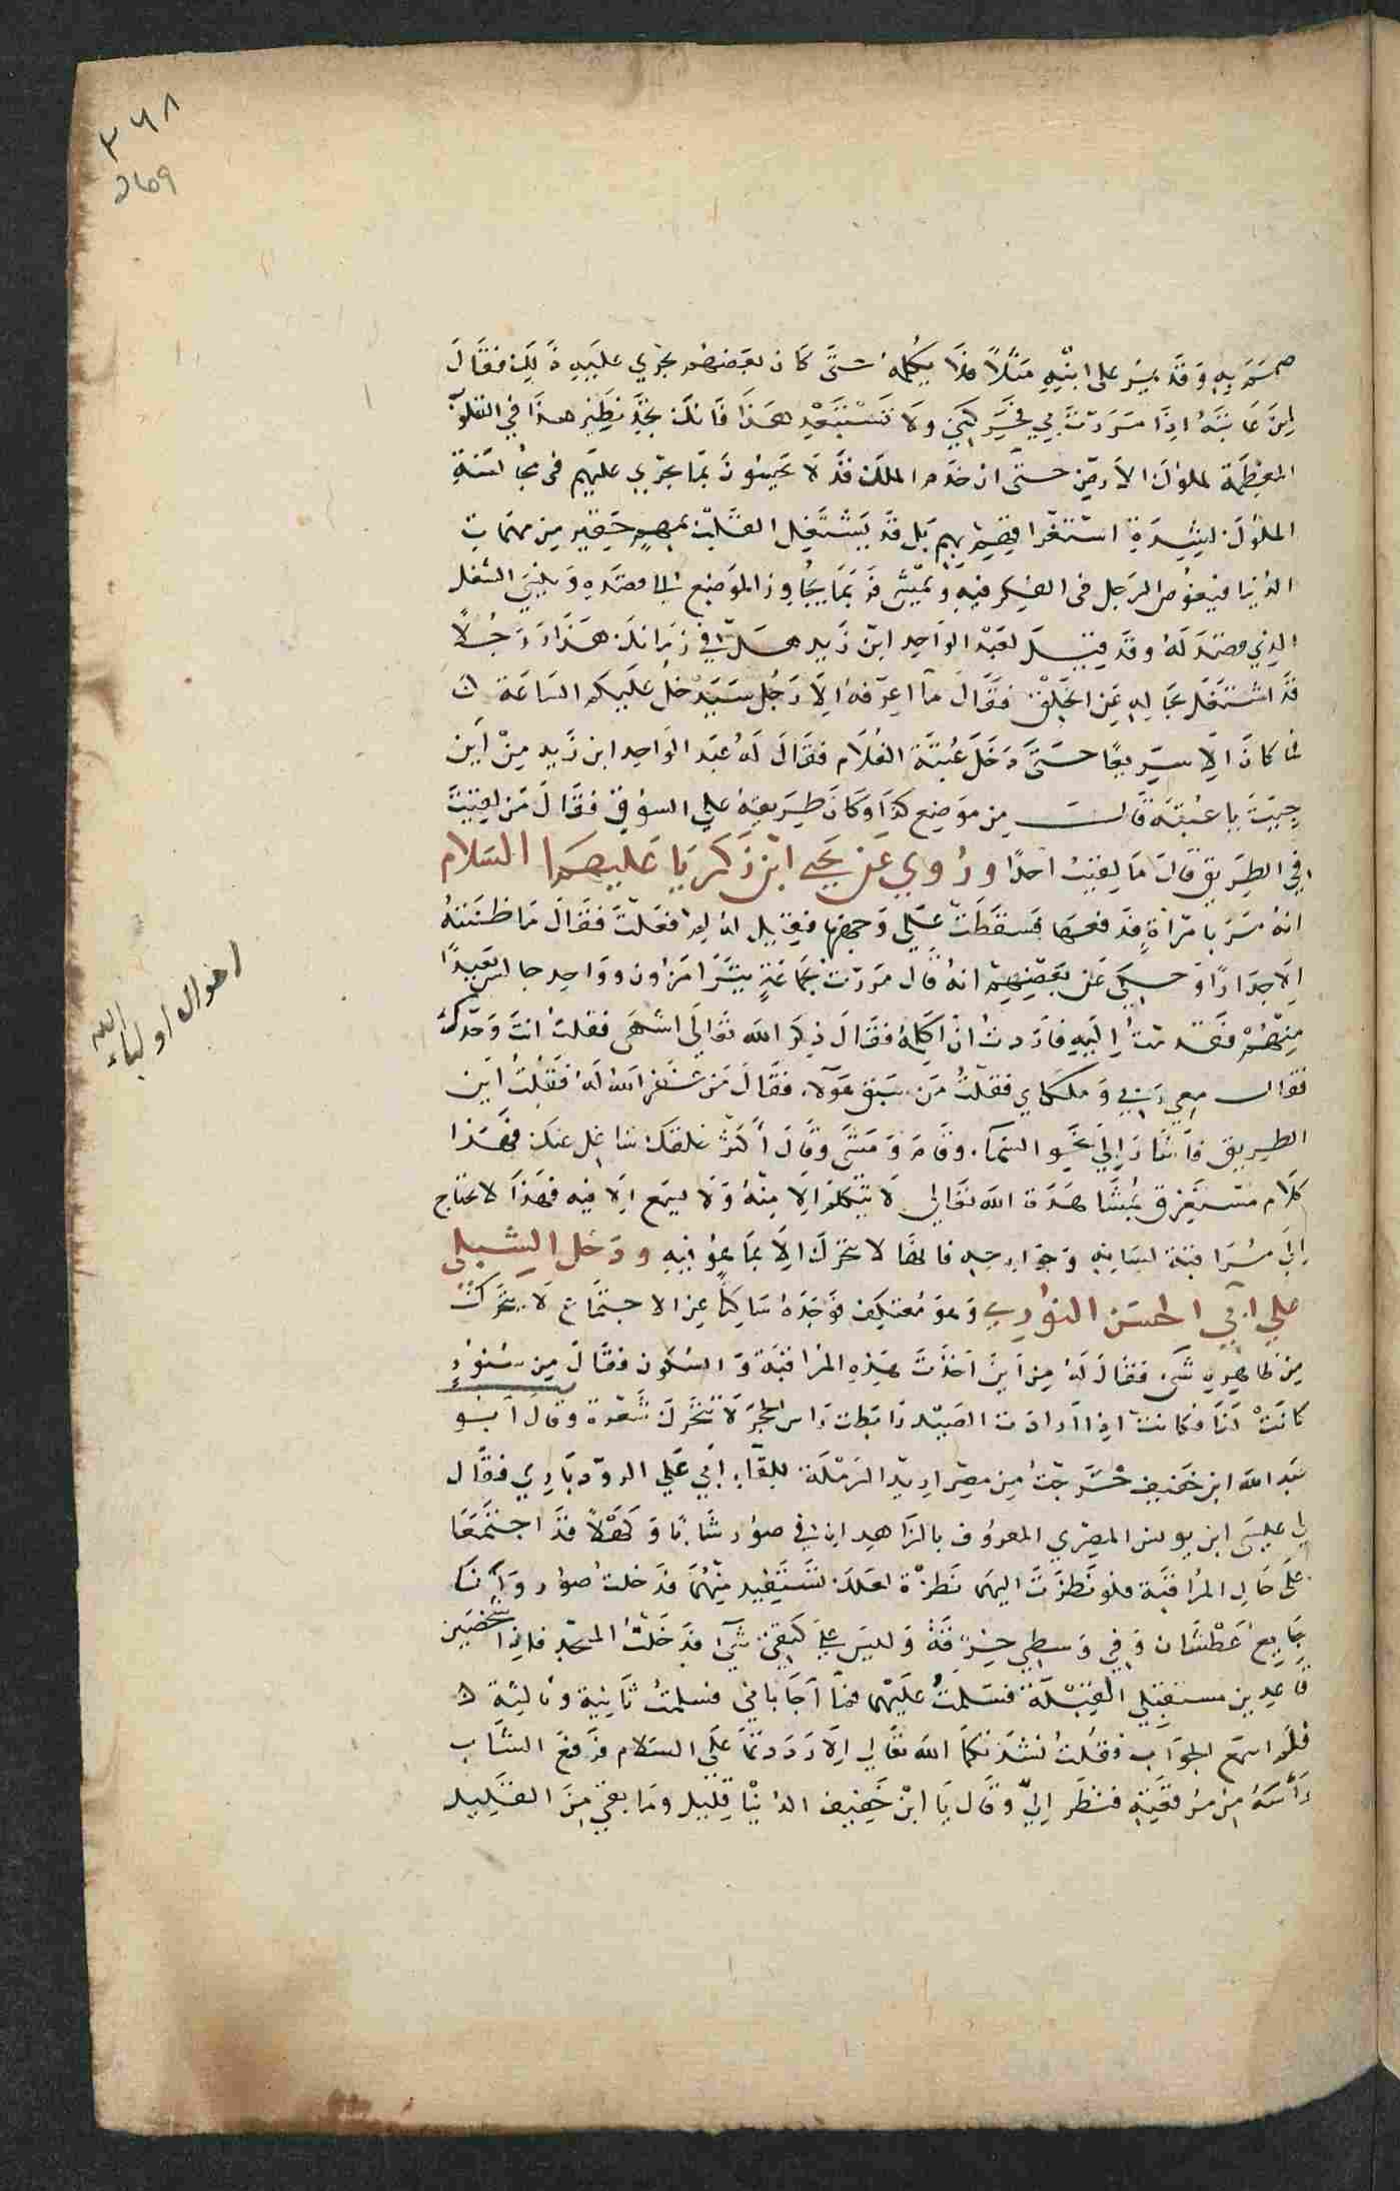 ٣٦٨
269
صمم به وقد يمر على ابنه مثلا فلا يكلمه حتى كان بعضهم يجري عليه ذلك فقال
لمن عاتبه اذا مررت بي فحركني ولا تستبعد هذا فانك تجد نظير هذا في القلوب
المعظمة لملوك الارض حتى ان خدم الملك قد لا يحسون بما يجري عليهم في مجالسة
الملوك لشدة استغراقهم بهم بل قد يشتغل القلب بمهم حقير من مهمات
الدنيا فيغوص الرجل في الفكر فيه ويمشي فربما يجاوز الموضع الذي قصده وينسى الشغل
الذي قصد له وقد قيل لعبد الواحد ابن زيد هل في زمانك هذا رجلا
قد اشتغل بحاله عن الخلق فقال ما اعرفه الا رجل سيدخل عليكم الساعة
فما كان الا سريعا حتى دخل عتبة الغلام فقال له عبد الواحد ابن زيد من اين
جيت يا عتبة قال من موضع كذا وكان طريقه على السوق فقال من لقيت
في الطريق قال ما لقيت احدا وروي عن يحيى ابن زكريا عليهما السلام
انه مر بامراة فدفعها فسقطت على وجهها فقيل له لم فعلت فقال ما ظننته
الا جدارا وحكي عن بعضهم انه قال مررت بجماعة يترامون وواحد جالس بعيدا
منهم فتقدمت اليه فاردت ان اكلمه فقال ذكر الله تعالى اشهى فقلت انت وحدك
فقال معي ربي وملكاي فقلت من سبق هولاء فقال من غفر الله له فقلت اين
الطريق فاشار الى نحو السماء وقام ومشى وقال اكثر خلقك شاغل عنك فهذا
كلام مستغرق بمشاهدة الله تعالى لا يتكلم الا منه ولا يسمع الا فيه فهذا لا يحتاج
الى مراقبة لسانه وجوارحه فانها لا تتحرك الا بما هو فيه ودخل الشبلي
على ابي الحسن النوري وهو معتكف فوجده ساكنا عن الاجتماع لا يتحرك
من ظاهره شيء فقال له من اين اخذت هذه المراقبة والسكون فقال من سنور
كانت لنا فكانت اذا ارادت الصيد رابطت راس الجحر لا تتحرك شعرة وقال ابو
عبد الله ابن خفيف خرجت من مصر اريد الرملة للقاء ابي علي الرودباري فقال
لي عيسى ابن يونس المصري المعروف بالزاهد ان في صور شابا وكهلا قد اجتمعا
على حال المراقبة فلو نظرت اليهما نظرة لعلك تستفيد منهما فدخلت صور وانا
جايع عطشان وفي وسطي خرقة وليس على كتفي شيء فدخلت المسجد فاذا بشخصين
قاعدين مستقبلي القبلة فسلمت عليهما فما اجاباني فسلمت ثانية وثالثة
فلم اسمع الجواب فقلت نشدتكما الله تعالى الا رددتما علي السلام فرفع الشاب
راسه من مرقعته فنظر الي وقال يا ابن خفيف الدنيا قليل وما بقي من القليل
احوال اولياء الله